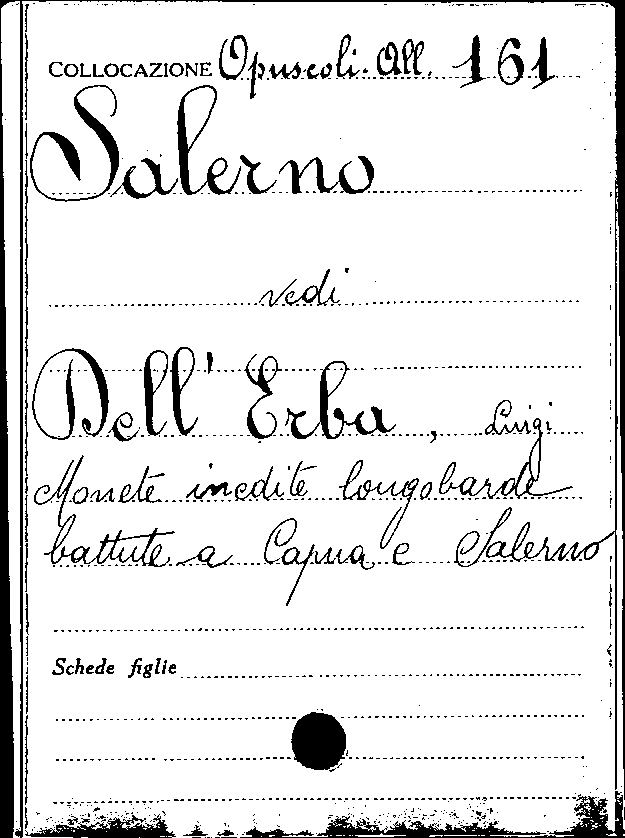 COLLOCAZIONE Opuscoli. All. 161
Salerno
vedi
Dell' Erba, Luigi
Monete inedite longobarde
battute a Capua e Salerno
Schede figlie